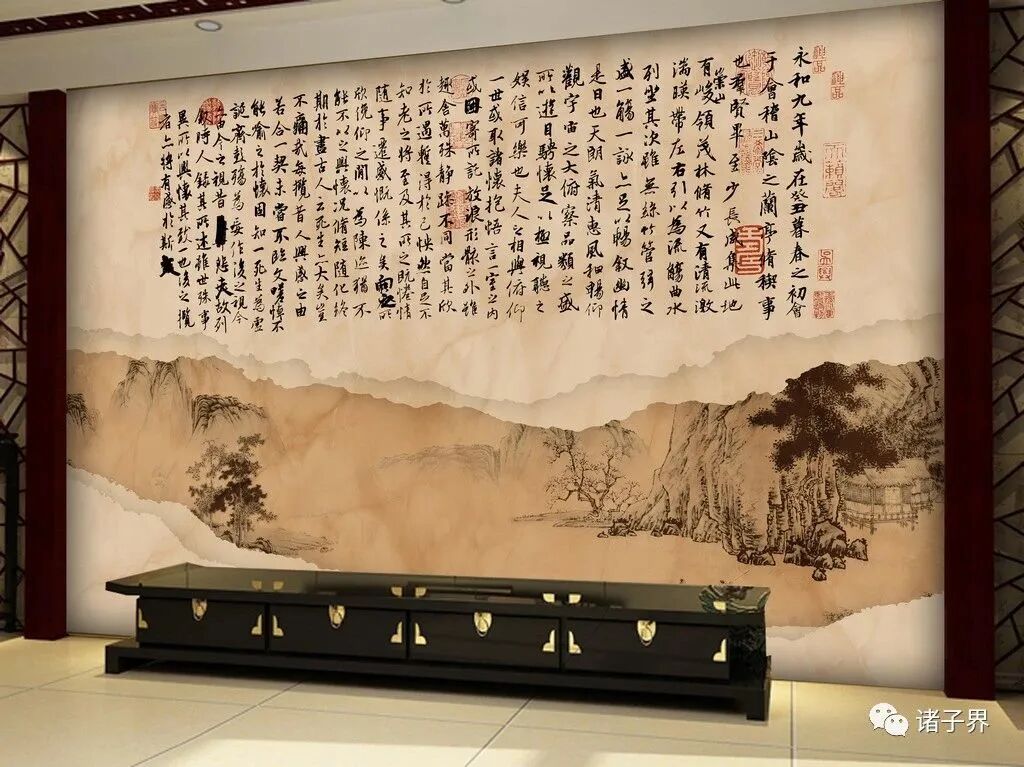 永和九年歲在癸丑暮春之初會
于會稽山陰之蘭亭脩稧事
也羣賢畢至少長咸集此地
有崇山峻領茂林脩竹又有清流激
湍暎帶左右引以為流觴曲水
列坐其次雖無絲竹管弦之
盛一觴一詠亦足以暢敘幽情
是日也天朗氣清惠風和暢仰
觀宇宙之大俯察品類之盛
所以遊目騁懷足以極視聽之
娛信可樂也夫人之相與俯仰
一世或取諸懷抱悟言一室之內
或因寄所託放浪形骸之外雖
趣舍萬殊靜躁不同當其欣
於所遇暫得於己怏然自足不
知老之將至及其所之既惓情
隨事遷感慨係之矣向之所
欣俛仰之閒以為陳迹猶不
能不以之興懷況脩短隨化終
期於盡古人云死生亦大矣豈
不痛哉每攬昔人興感之由
若合一契未嘗不臨文嗟悼不
能喻之於懷固知一死生為虛
誕齊彭殤為妄作後之視今
亦由今之視昔悲夫故列
敘時人錄其所述雖世殊事
異所以興懷其致一也後之攬
者亦將有感於斯文
诸子界